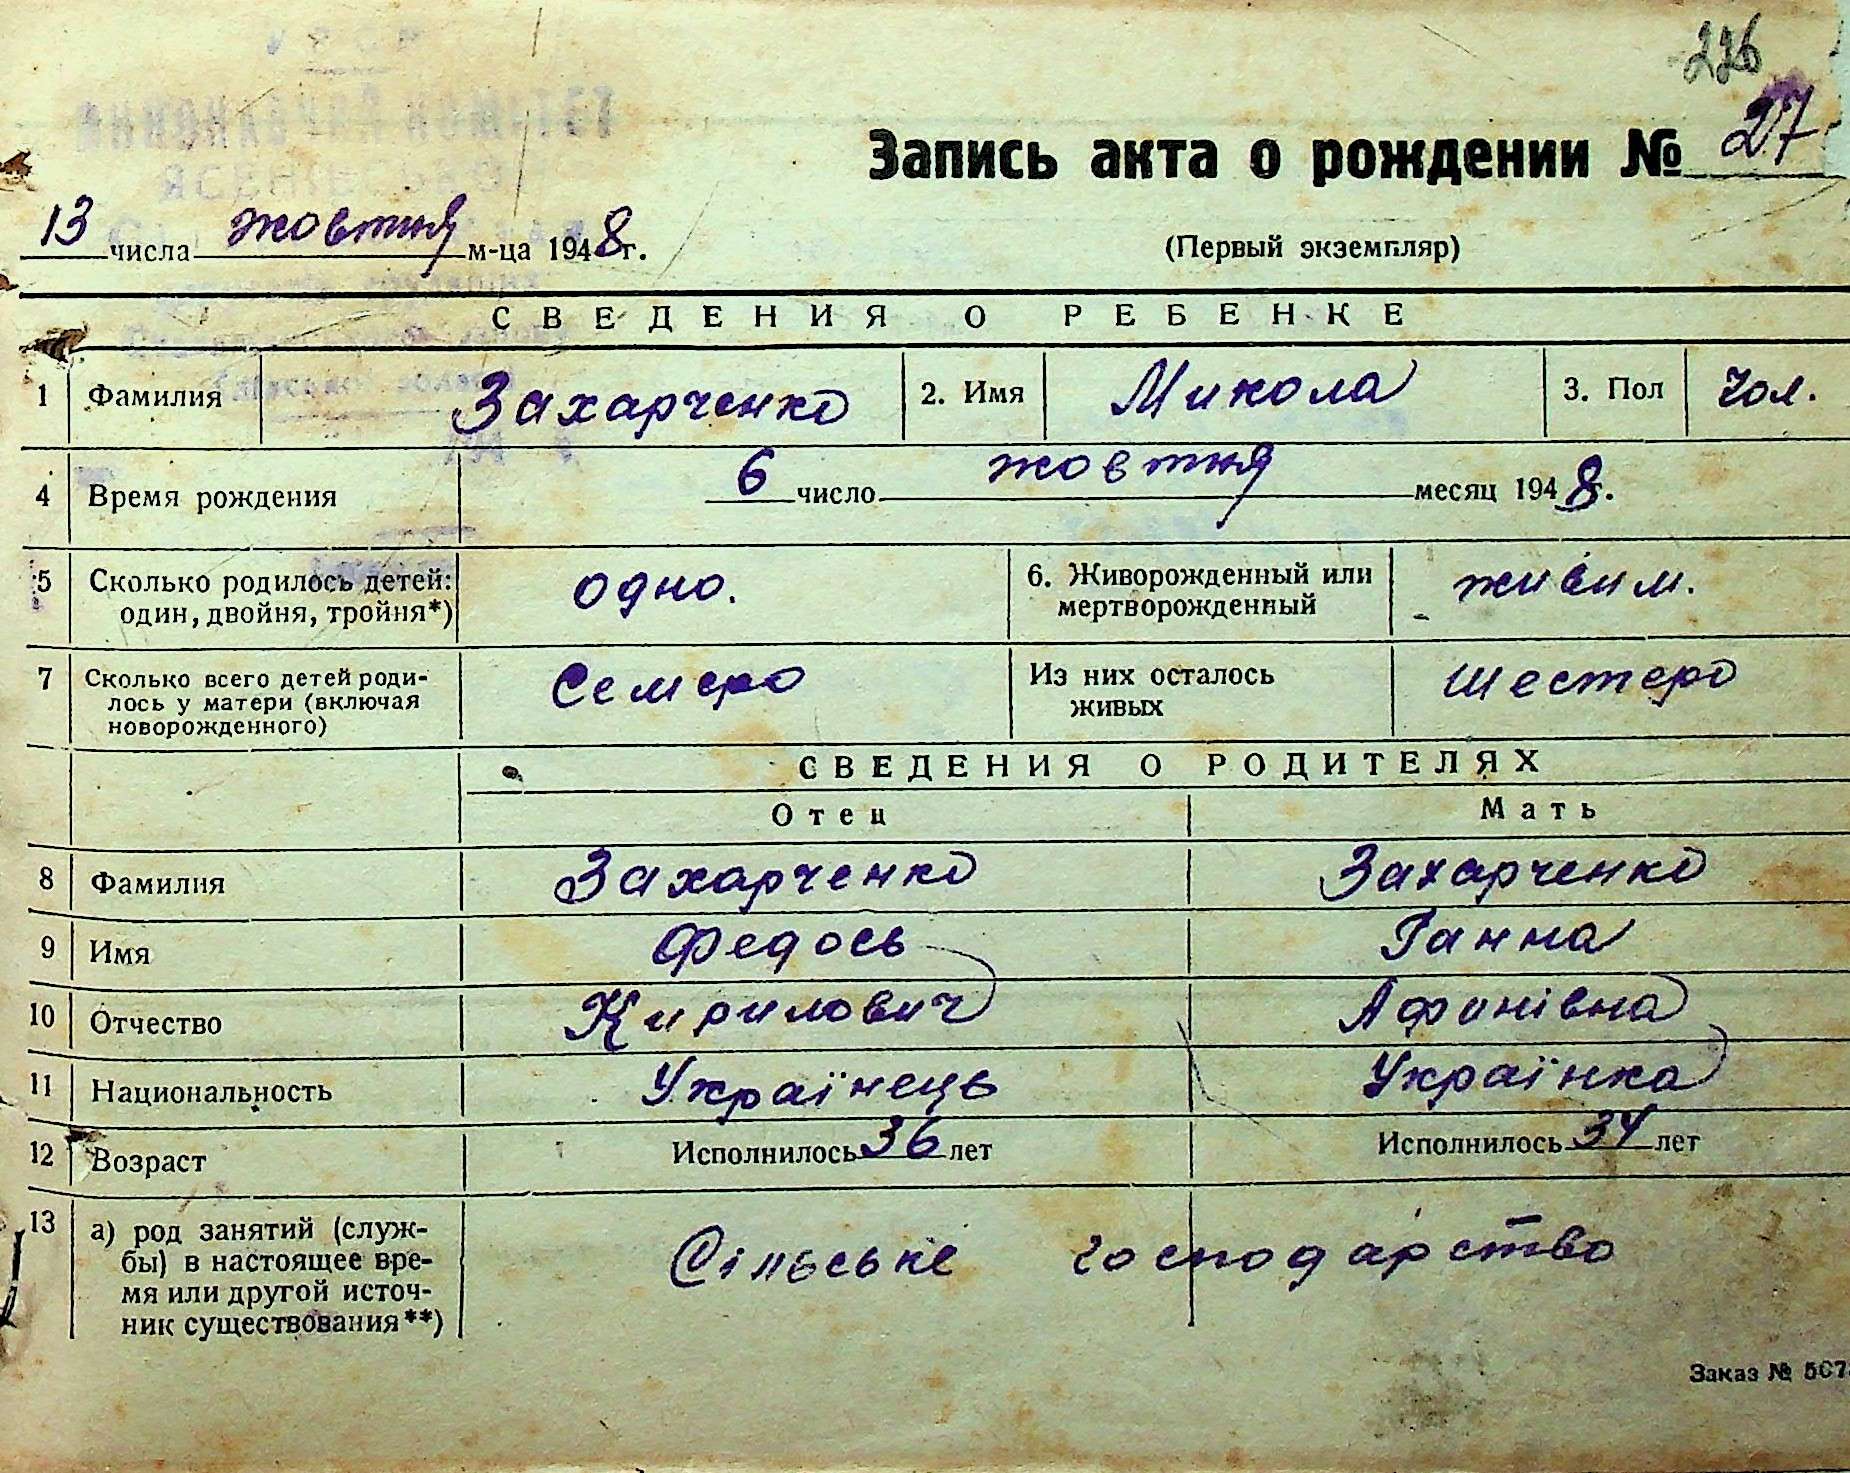 226
Запись акта о рождении № 27
13 числа жовтня м-ца 1948 г.
(Первый экземпляр)
СВЕДЕНИЯ О РЕБЕНКЕ
1 Фамилия Захарченко 2. Имя Микола 3. Пол чол.
4 Время рождения 6 число жовтня месяц 1948 г.
5 Сколько родилось детей: один, двойня, тройня*) одно. 6. Живорожденный или мертворожденный живим.
7 Сколько всего детей родилось у матери (включая новорожденного) Семеро Из них осталось живых шестеро
СВЕДЕНИЯ О РОДИТЕЛЯХ
Отец Мать
8 Фамилия Захарченко Захарченко
9 Имя Федось Ганна
10 Отчество Кирилович Афонівна
11 Национальность Українець Українка
12 Возраст Исполнилось 36 лет Исполнилось 34 лет
13 а) род занятий (служ-
бы) в настоящее вре-
мя или другой источ-
ник существования**) Сільське господарство
Заказ №